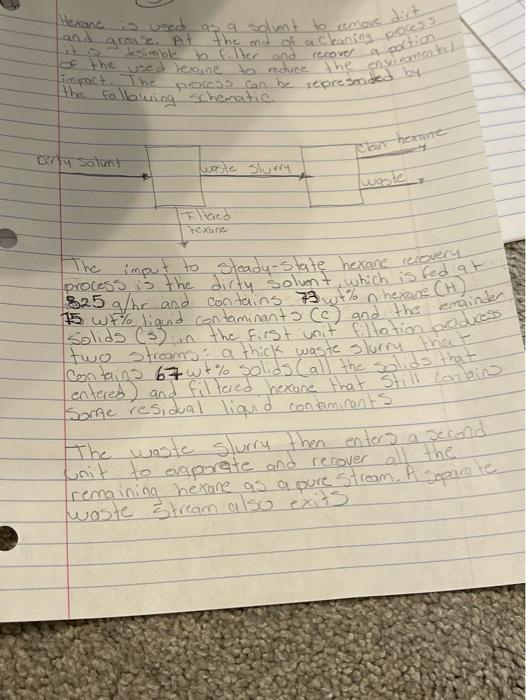 Hexane is used as a solvent to remove dirt
and grease. At the end of a cleaning process
it is desirable to filter and recover a portion
of the used hexane to reduce the enviromental
impact. The process can be represended by
the following schematic.
clean hexane
Dirty Solunt
waste Slurry
waste
Filtered
hexane
The input to steady-state hexane recovery
process is the dirty solvent, which is fed at
825 g/hr and contains 73 wt% n hexane (H)
15 wt% liquid contaminants (c) and the remainder
Solids (s), in the first unit fillation produces
two streams: a thick waste slurry that
Contains 67 wt% solids (all the solids that
entered) and filtered hexane that still contains
some residual liquid contaminants
The waste slurry then enters a second
unit to evaporate and recover all the
remaining hexane as a pure stream. A separate
waste stream also exits